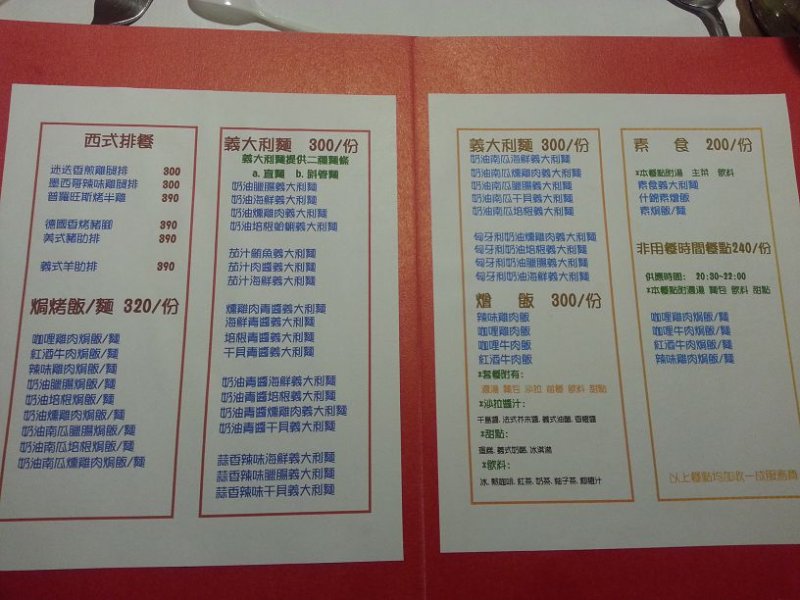 西式排餐
迷迭香煎雞腿排 300
墨西哥辣味雞腿排 300
普羅旺斯烤半雞 390
德國香烤豬腳 390
美式豬肋排 390
義式羊肋排 390
焗烤飯/麵 320/份
咖哩雞肉焗飯/麵
紅酒牛肉焗飯/麵
辣味雞肉焗飯/麵
奶油臘腸焗飯/麵
奶油培根焗飯/麵
奶油燻雞肉焗飯/麵
奶油南瓜臘腸焗飯/麵
奶油南瓜培根焗飯/麵
奶油南瓜燻雞肉焗飯/麵
義大利麵 300/份
義大利麵提供二種麵條
a. 直麵 b. 斜管麵
奶油臘腸義大利麵
奶油海鮮義大利麵
奶油燻雞肉義大利麵
奶油培根蛤蜊義大利麵
茄汁鮪魚義大利麵
茄汁肉醬義大利麵
茄汁海鮮義大利麵
燻雞肉青醬義大利麵
海鮮青醬義大利麵
培根青醬義大利麵
干貝青醬義大利麵
奶油青醬海鮮義大利麵
奶油青醬培根義大利麵
奶油青醬燻雞肉義大利麵
奶油青醬干貝義大利麵
蒜香辣味海鮮義大利麵
蒜香辣味臘腸義大利麵
蒜香辣味干貝義大利麵
義大利麵 300/份
奶油南瓜海鮮義大利麵
奶油南瓜燻雞義大利麵
奶油南瓜臘腸義大利麵
奶油南瓜干貝義大利麵
奶油南瓜培根義大利麵
匈牙利奶油燻雞肉義大利麵
匈牙利奶油培根義大利麵
匈牙利奶油臘腸義大利麵
匈牙利奶油海鮮義大利麵
燴 飯 300/份
辣味雞肉飯
咖哩雞肉飯
咖哩牛肉飯
紅酒牛肉飯
*套餐附有:
濃湯 麵包 沙拉 前餐 飲料 甜點
*沙拉醬汁:
千島醬, 法式芥末醬, 義式油醋, 香橙醬
*甜點:
蛋糕, 義式奶酪, 冰淇淋
*飲料:
冰, 熱咖啡, 紅茶, 奶茶, 柚子茶, 柳橙汁
素 食 200/份
*本餐點附湯 主菜 飲料
素食義大利麵
什錦素燴飯
素焗飯/麵
非用餐時間餐點240/份
供應時間: 20:30~22:00
*本餐點附濃湯 麵包 飲料 甜點
咖哩雞肉焗飯/麵
咖哩牛肉焗飯/麵
紅酒牛肉焗飯/麵
辣味雞肉焗飯/麵
以上餐點均加收一成服務費